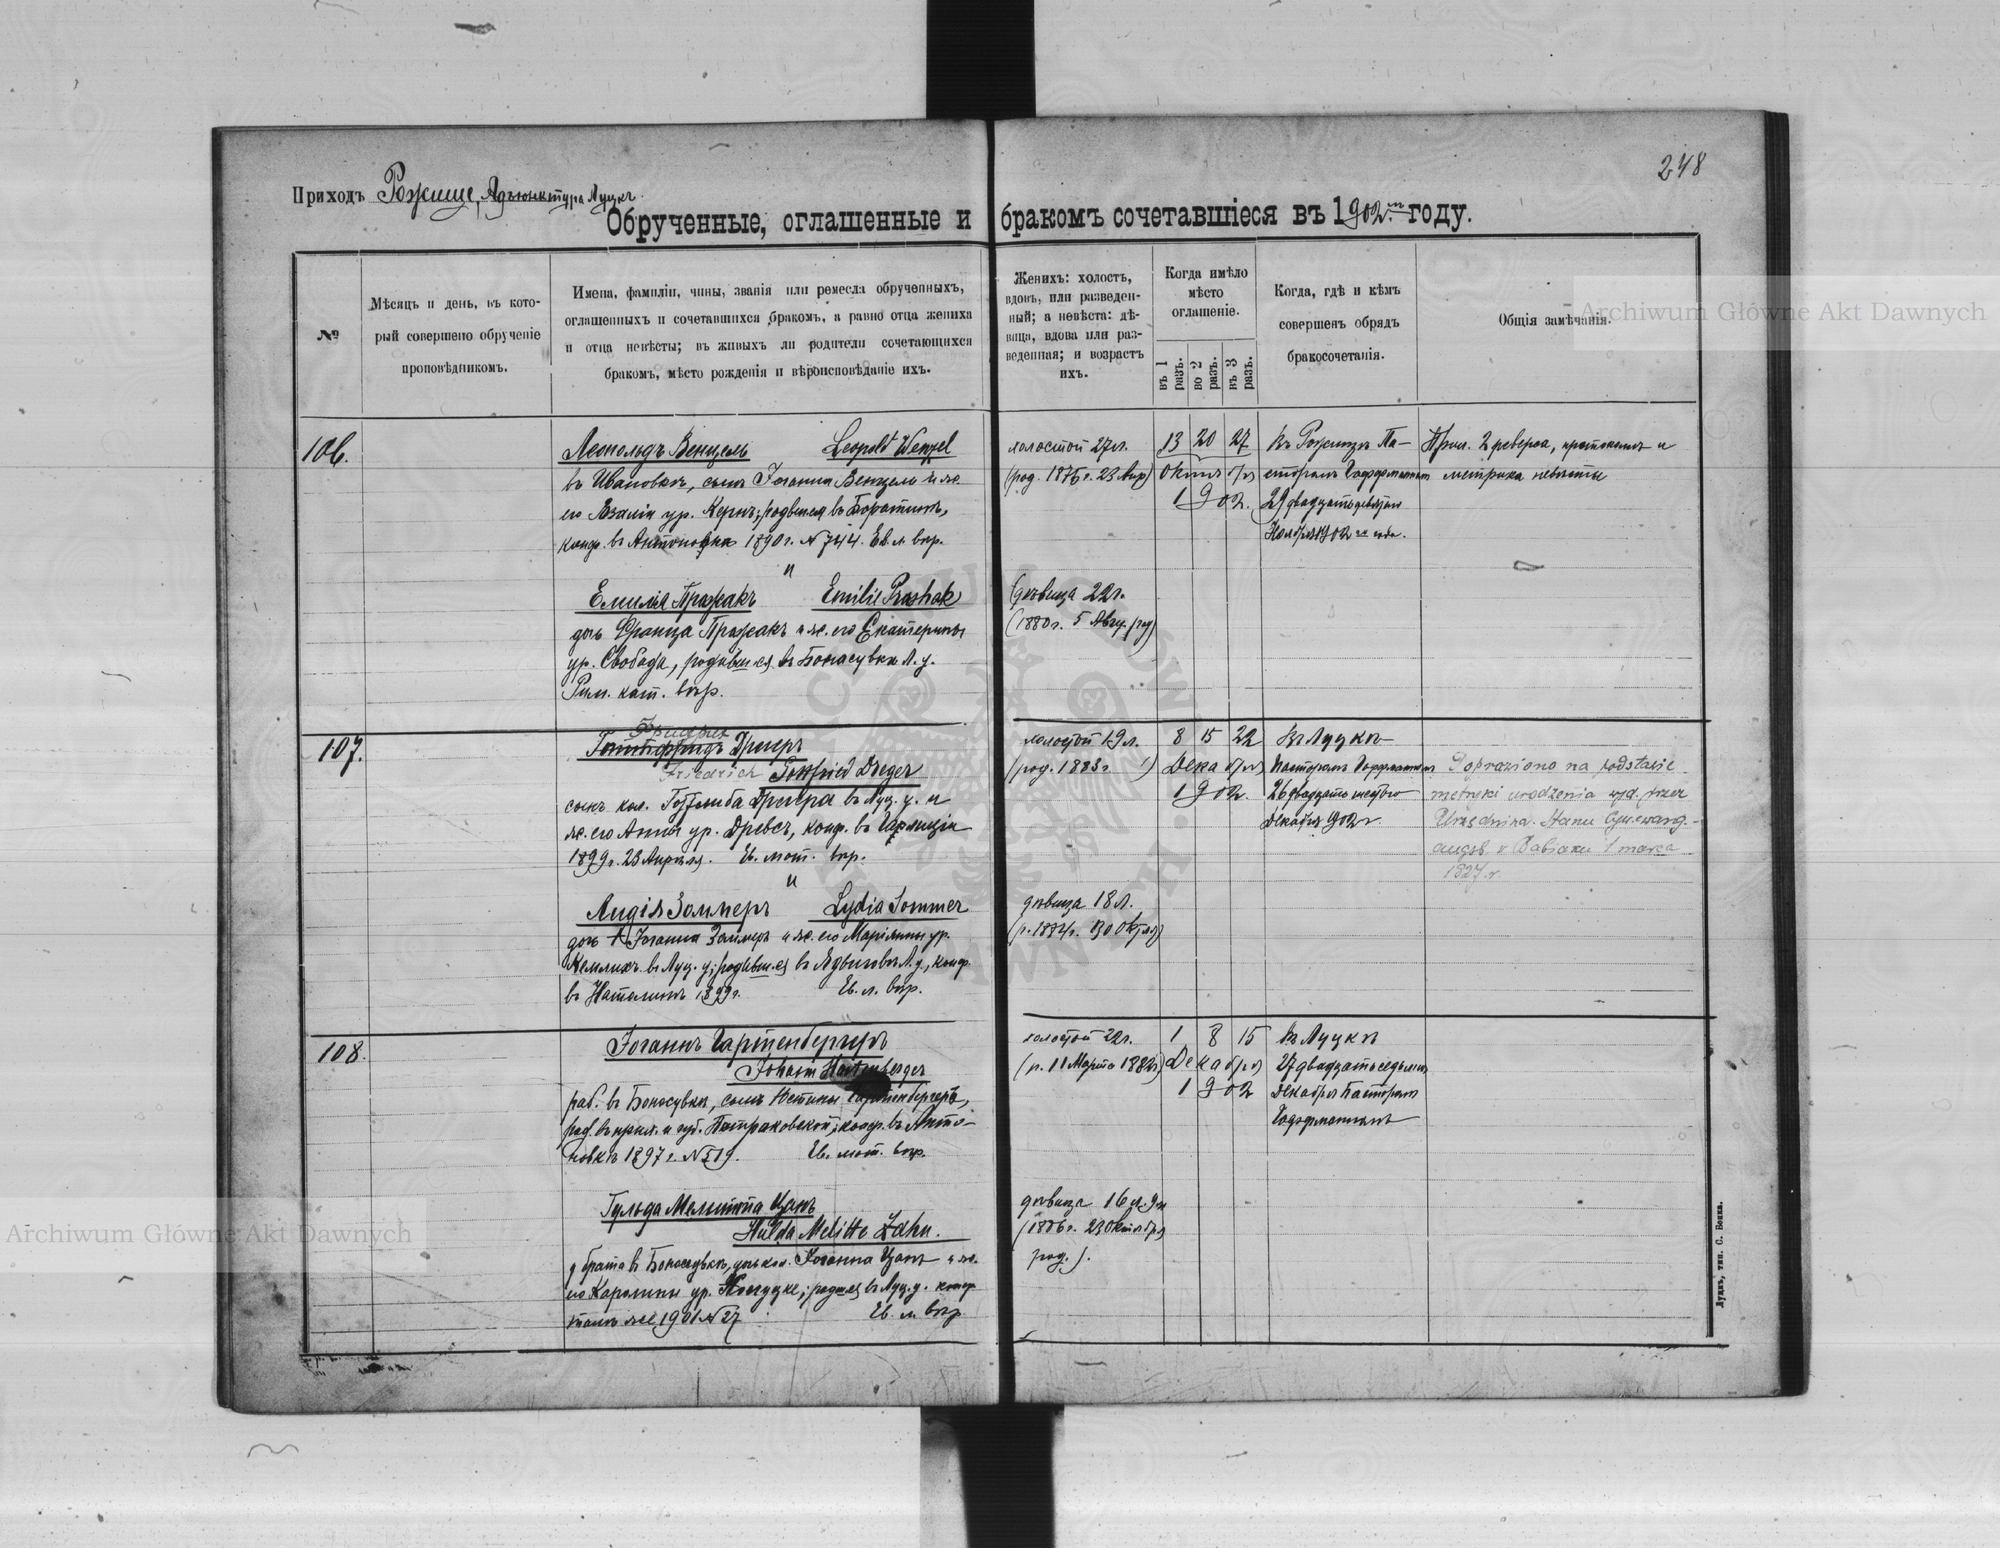 248
Приходъ Рожище, Адъюнктура Луцкъ
Обрученные, оглашенные и бракомъ сочетавшіеся въ 1902 году.
№
Мѣсяцъ и день, въ кото-
рый совершено обрученіе
проповѣдникомъ.
Имена, фамиліи, чины, званія или ремесла обрученныхъ,
оглашенныхъ и сочетавшихся бракомъ, а равно отца жениха
и отца невѣсты; въ живыхъ ли родители сочетающихся
бракомъ, мѣсто рожденія и вѣроисповѣданіе ихъ.
Женихъ: холостъ,
вдовъ, или разведен-
ный; а невѣста: дѣ-
вица, вдова или раз-
веденная; и возрастъ
ихъ.
Когда имѣло
мѣсто
оглашеніе.
въ 1 разъ.
во 2 разъ.
въ 3 разъ.
Когда, гдѣ и кѣмъ
совершенъ обрядъ
бракосочетанія.
Общія замѣчанія.
Archiwum Główne Akt Dawnych
106.
Леопольдъ Венцель Leopold Wenzel
въ Ивановкѣ, сынъ Іоганна Венцеля и ж.
его Розаліи ур. Кернъ; родвшійся въ Боратинѣ,
конф. въ Антоновка 1890 г. № 744. Ев. л. вѣр.
и
Емилія Пражакъ Emilie Prashak
дочь Франца Пражакъ и ж. его Екатерины
ур. Свобода, родившаяся въ Боголсувка Л. у.
Рим. кат. вѣр.
холостой 27 л.
(род. 1875 г. 23 Апр)
13 20 27
Октября
1902.
Въ Рожищѣ Па-
сторомъ Гоффманномъ
29 двадцать девятаго
Ноября 1902 го года.
Прил. 2 реверса, протоколъ и
метрика невѣсты
дѣвица 22 г.
(1880 г. 5 Авгу. род)
107.
Фридрих
Готтфридъ Дрегеръ
Friedrich Gottfried Dreger
сынъ кол. Готлиба Дрегера въ Луц. у. и
ж. его Анны ур. Древсъ, конф. въ
1899 г. 23 Апрѣля. Ев. лют. вѣр.
и
Лидія Зоммеръ Lydia Sommer
дочь † Іоганна Зоммеръ и ж. его Маріанны ур.
въ Луц. у; родивш.ся въ Л. у., конф.
въ Наталинъ 1899 г. Ев. л. вѣр.
холостой 19 л.
(род. 1883 г. )
8 15 22
Декабря
1902.
Въ Луцкѣ
Пасторомъ Гоффманномъ
26 двадцать шестого
Декабря 1902 г
Poprawiono na podstawie
metryki urodzenia wyd. przez
Urzędnika Stanu Cyw. ewang.-
augsb. w Babiaku 1 marca
1927 r.
дѣвица 18 л.
(р. 1884 г. 30 Окт)
108.
Іоганнъ Гартенбергеръ
Johann Hartenberger
раб. въ Боголсувкѣ, сынъ Юстины Гартенбергеръ,
род. въ и губ. Петраковской, конф. въ Анто-
новкѣ 1897 г. № 519. Ев. лют. вѣр.
Гульда Мелитта Цанъ
Hulda Melitta Zahn.
дочь кол. Іоганна Цанъ и ж.
его Каролины ур. родшаяся въ Луц. у. конф.
тамъ же 1901 № 27 Ев. л. вѣр.
холостой 22 г.
(р. 11 Марта 1880)
1 8 15
Декабря
1902
Въ Луцкѣ
27 двадцать седьмого
Декабря Пасторомъ
Гоффманномъ
дѣвица 16 л.
(1886 г. 23 Октября
род.).
Луцкъ, тип. С. Бокка.
Archiwum Główne Akt Dawnych